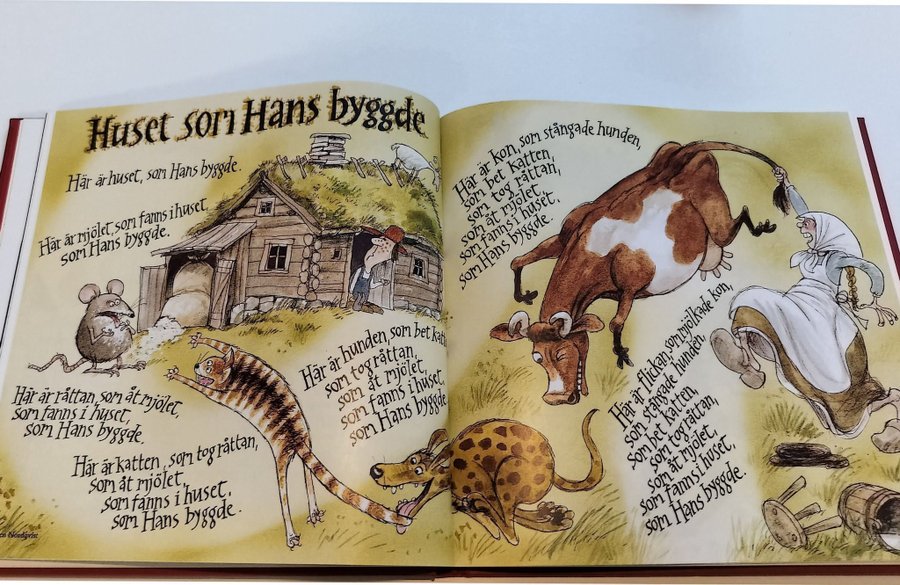 Huset som Hans byggde
Här är huset, som Hans byggde.
Här är mjölet, som fanns i huset,
som Hans byggde.
Här är råttan, som åt mjölet,
som fanns i huset,
som Hans byggde.
Här är katten, som tog råttan,
som åt mjölet,
som fanns i huset,
som Hans byggde.
Här är hunden, som bet katt
som tog råttan,
som åt mjölet,
som fanns i huset,
som Hans byggde
Här är kon, som stångade hunden,
som bet katten,
som tog råttan,
som åt mjölet,
som fanns i huset,
som Hans byggde.
Här är flickan, som mjölkade kon,
som stångade hunden,
som bet katten,
som tog råttan,
som åt mjölet
som fanns i huset,
som Hans byggde.
Nordqvist